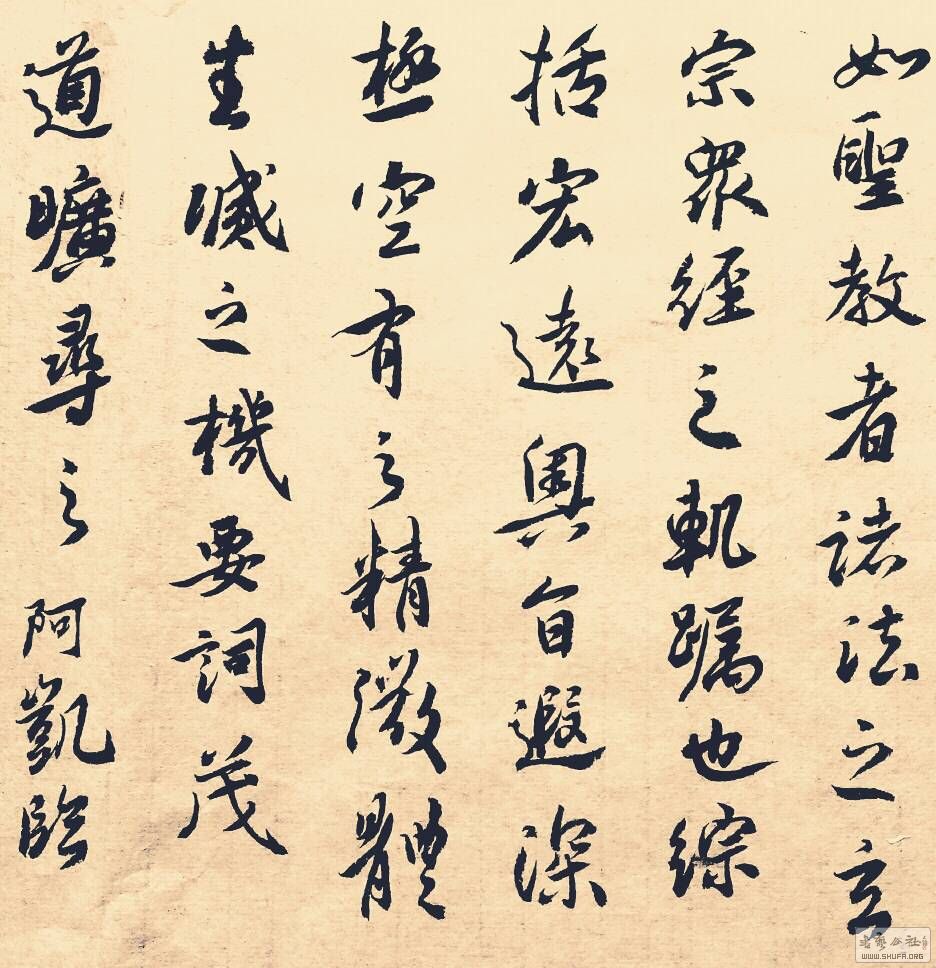 如聖教者諸法之玄
宗衆經之軌躅也綜
括宏遠奧旨遐深
極空有之精微體
生滅之機要詞茂
道曠尋之 阿凱臨
書藝公社
WWW.SHUFA.ORG